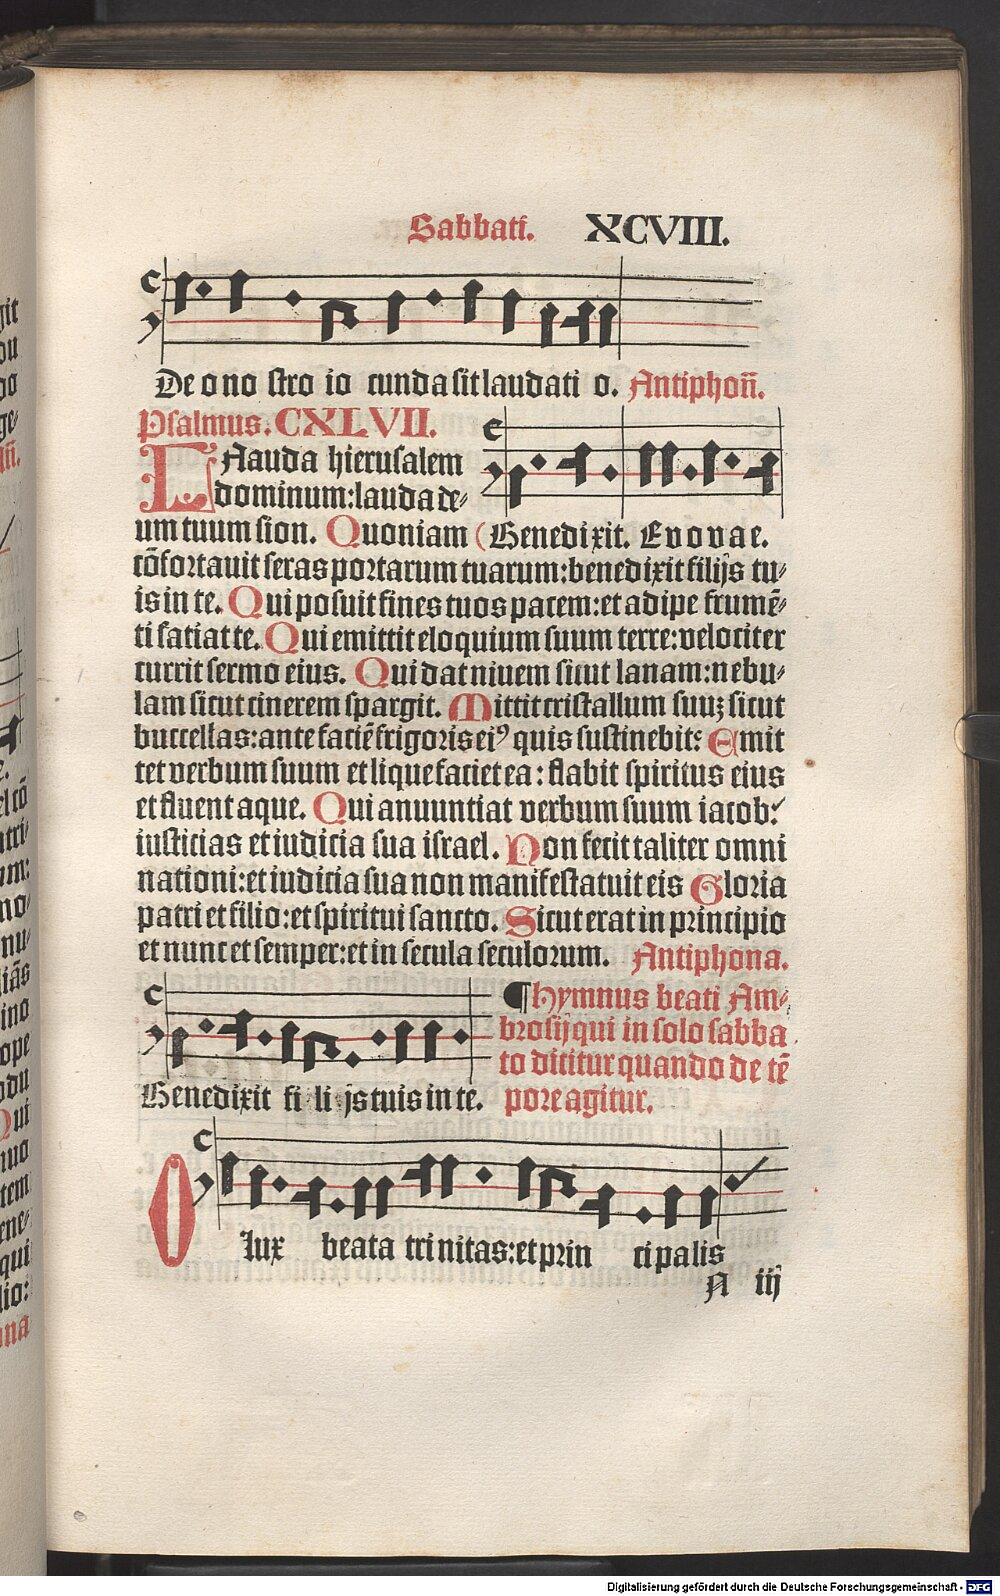 Sabbati. XCVIII.
De o no stro io cunda sit laudati o. Antiphoñ.
Psalmus. CXLVII.
LAauda hierusalem
dominum:lauda de⸗
um tuum sion. Quoniam (Benedixit. Evovae.
cōfortauit seras portarum tuarum:benedixit filijs tu⸗
is in te. Qui posuit fines tuos pacem:et adipe frumē⸗
ti satiat te. Qui emittit eloquium suum terre:velociter
currit sermo eius. Qui dat niuem sicut lanam:nebu⸗
lam sicut cinerem spargit. Mittit cristallum suuʒ sicut
buccellas:ante faciē frigoris eiꝰ quis sustinebit: Emit
tet verbum suum et liquefaciet ea: flabit spiritus eius
et fluent aque. Qui anuuntiat verbum suum iacob:
iusticias et iudicia sua israel. Non fecit taliter omni
nationi:et iudicia sua non manifestatuit eis Gloria
patri et filio:et spiritui sancto. Sicut erat in principio
et nunc et semper:et in secula seculorum. Antiphona.
¶Hymnus beati Am⸗
brosij qui in solo sabba
to dicitur quando de tē
pore agitur.
Benedixit fi li ijs tuis in te.
O lux beata trinitas:et prin cipalis
A iij
git
ou
do
ge⸗
el cō
ntri⸗
um:
no⸗
nu⸗
iās
ino
ope
odu
Qui
nua
tem
ene⸗
qui
lio:
ona
Digitalisierung gefördert durch die Deutsche Forschungsgemeinschaft - DFG